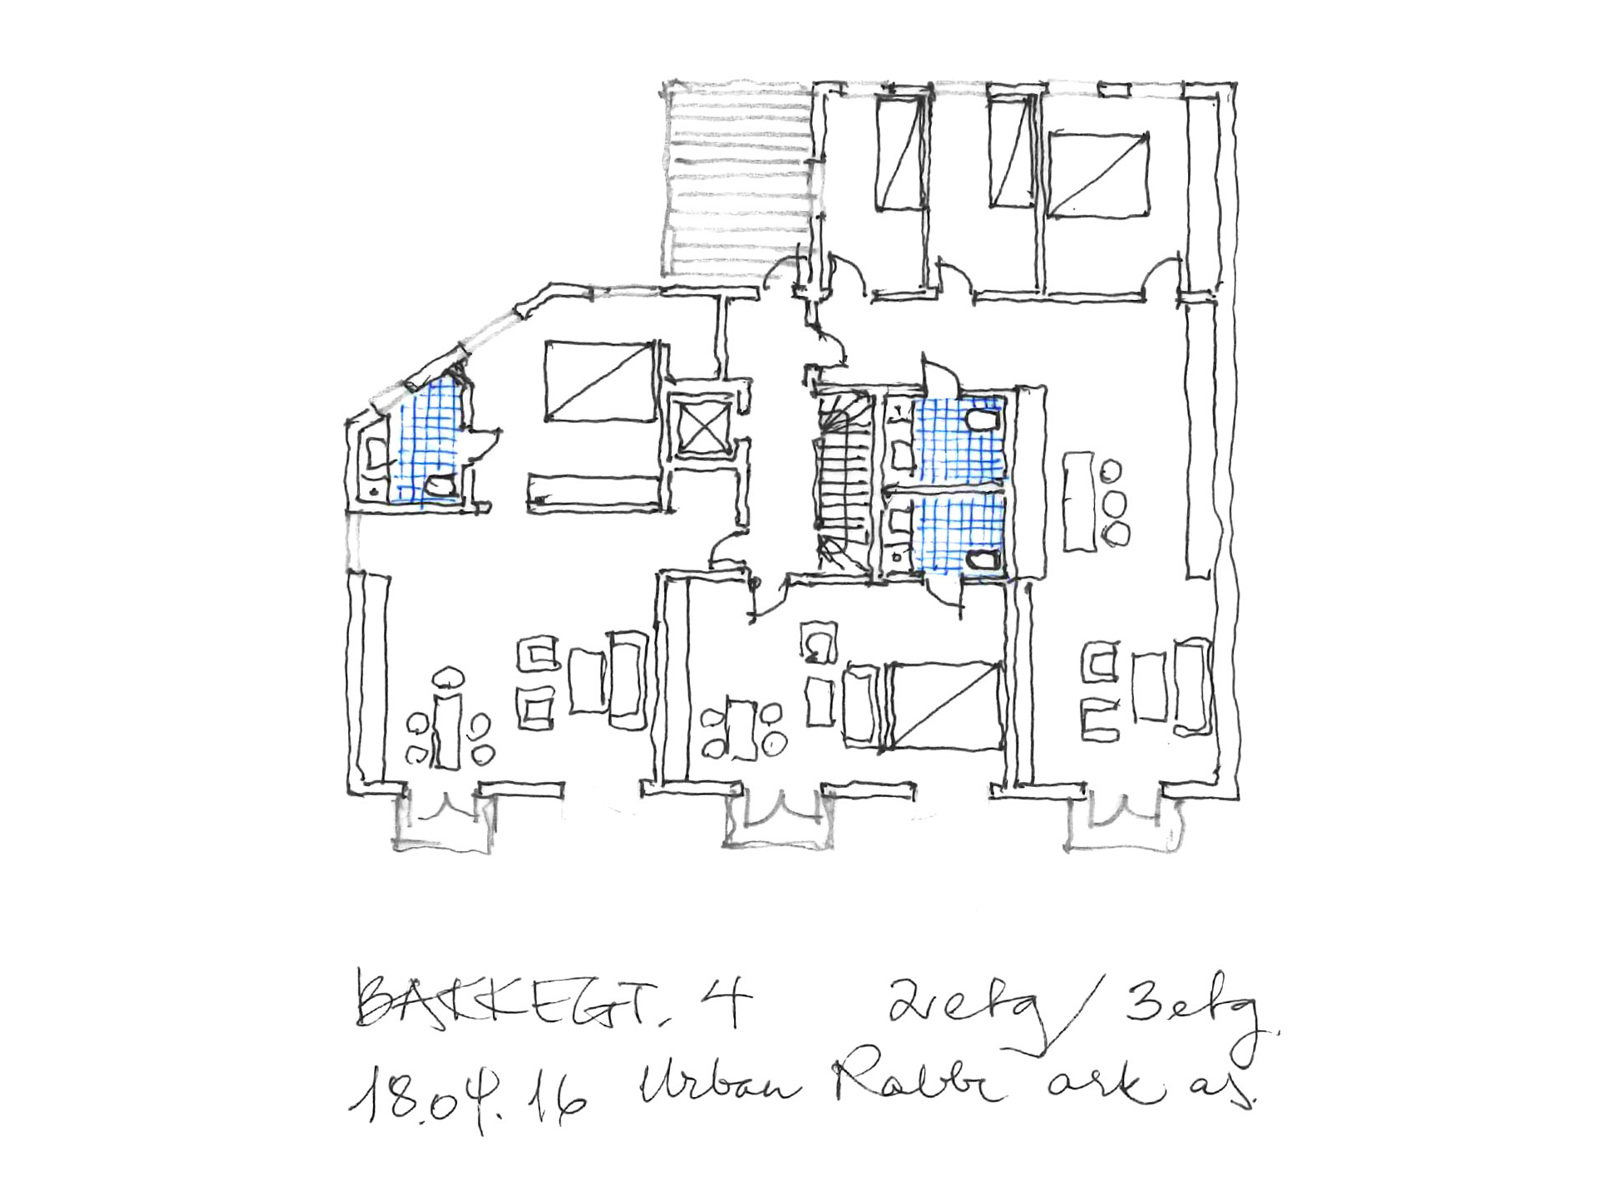 BAKKEGT. 4 2 etg / 3 etg.
18.04.16 Urban Rabbe ark as.